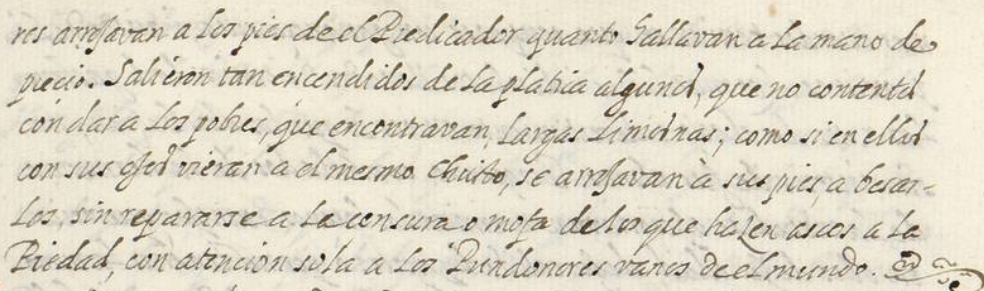 res arrojavan a los pies de el Predicador quanto hallavan a la mano de
precio. Salieron tan encendidos de la platica algunos, que no contentos
con dar a los pobres, que encontravan, largas Limosnas; como si en ellos
con sus ojos vieran a el mesmo Christo, se arrojavan à sus pies, a besar-
los, sin repararse a la censura o mofa de los que hazen ascos a la
Piedad, con atencion sola a los Pundonores vanos de el mundo.